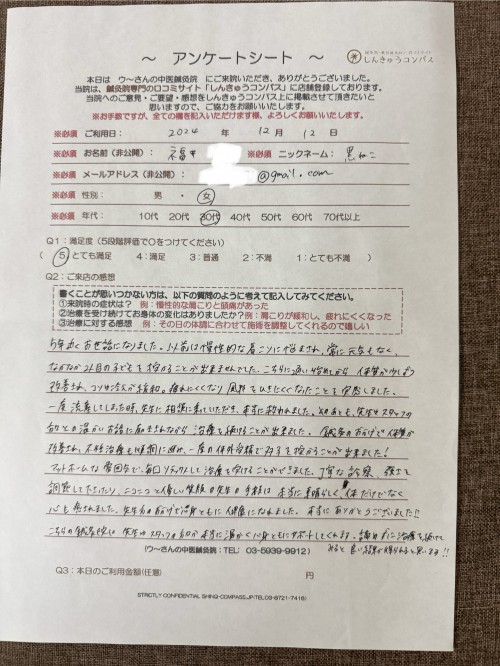 しんきゅうコンパス
〜 アンケートシート 〜
本日は ウ〜さんの中医鍼灸院 にご来院いただき、ありがとうございました。
当院は、鍼灸院専門の口コミサイト「しんきゅうコンパス」に店舗登録しております。
当院へのご意見・ご要望・感想をしんきゅうコンパス上に掲載させて頂きたいと
思いますので、ご協力をお願いいたします。
※お手数ですが、全ての欄を記入いただけます様、よろしくお願いいたします。
※必須 ご利用日: 2024 年 12月 12日
※必須 お名前(非公開): 福 ※必須 ニックネーム: 黒ねこ
※必須 メールアドレス(非公開): @gmail.com
※必須 性別: 男 ・ 女
※必須 年代: 10代 20代 30代 40代 50代 60代 70代以上
Q1:満足度(5段階評価で○をつけてください)
( 5:とても満足 4:満足 3:普通 2:不満 1:とても不満 )
Q2:ご来店の感想
書くことが思いつかない方は、以下の質問のように考えて記入してみてください。
①来院時の症状は? 例:慢性的な肩こりと頭痛があった
②治療を受け続けてお身体の変化はありましたか?例:肩こりが緩和し、疲れにくくなった
③治療に対する感想 例:その日の体調に合わせて施術を調整してくれるので嬉しい
5年近くお世話になりました。以前は慢性的な肩こりに悩まされ、常に元気もなく、
なかなか2人目の子どもを授かることが出来ませんでした。こちらに通い始めてから、体質が少しずつ
改善され、コリや冷えが緩和。疲れにくくなり風邪もひきにくくなったことを実感しました。
一度流産してしまった時、先生に相談に乗っていただき、本当に救われました。その後も、先生やスタッフの
方々との温かいお話に励まされながら 治療を続けることが出来ました。鍼灸のおかげで体質が
改善され、不妊治療も順調に進み、一度の体外受精で第2子を授かることが出来ました!
アットホームな雰囲気で、毎回リラックスして治療を受けることができました。丁寧な診察、強さを
調節して下さったり、ニコニコと優しい笑顔の先生の手技は 本当に素晴らしく、体だけでなく
心も癒されました。先生のおかげで心身ともに健康になれました。本当にありがとうございました!!
こちらの鍼灸院は 先生やスタッフの方々が本当に温かく心身ともにサポートしてくれます。諦めずに治療を続けて
みると良い結果が得られると思います!!
(ウ〜さんの中医鍼灸院:TEL: 03-5939-9912)
Q3:本日のご利用金額(任意) 円
STRICTLY CONFIDENTIAL SHINQ-COMPASS.JP(TEL:03-6721-7416)